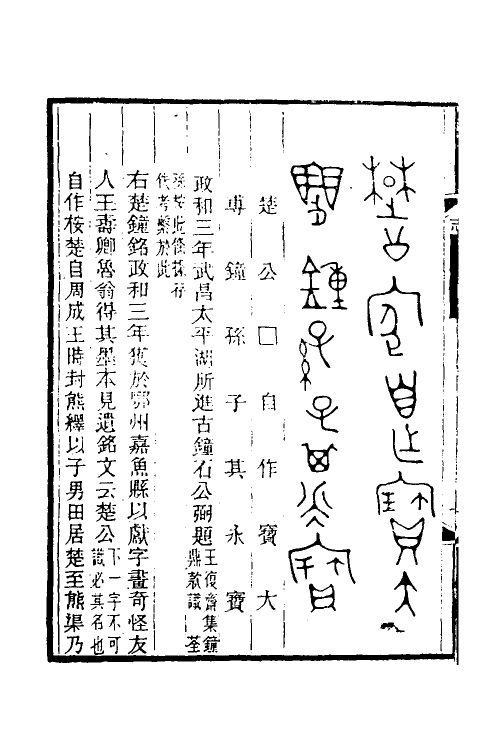 楚公□自作寶大
專鐘孫子其永寶
政和三年武昌太平湖所進古鐘石公弼題王復齋集鐘鼎款識荃
孫按此條採存
代考繫於此
右楚鐘銘政和三年獲於鄂州嘉魚縣以獻字畫奇怪友
人王壽卿魯翁得其墨本見遺銘文云楚公下一字不可識必其名也
自作按楚自周成王時封熊繹以子男田居楚至熊渠乃